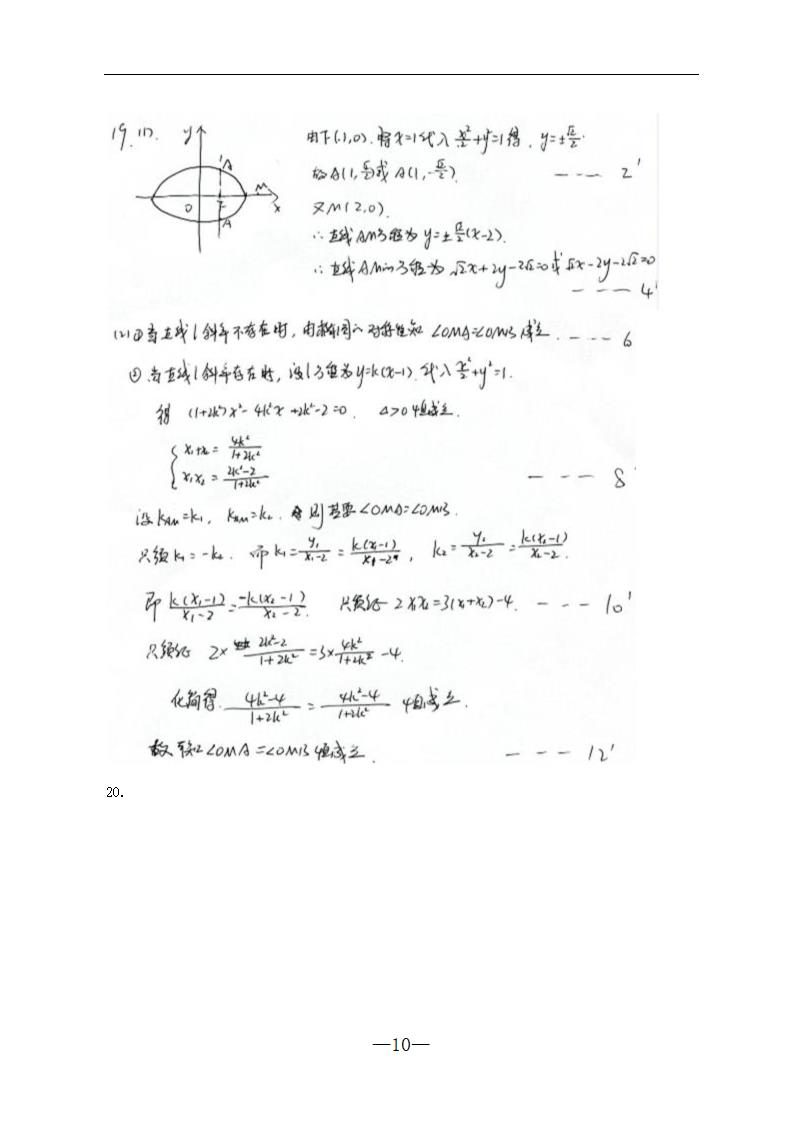 19.(1).
y
A
M
O
F
x
A
由F(1,0).将x=1代入x²/2+y²=1得, y=±√2/2.
故A(1,√2/2)或A(1,-√2/2).
--- 2'
又M(2,0).
∴直线AM方程为y=±√2/2(x-2).
∴直线AM的方程为√2x+2y-2√2=0或√2x-2y-2√2=0
--- 4'
(2)①当直线l斜率不存在时,由椭圆的对称性知∠OMA=∠OMB成立. --- 6
②当直线l斜率存在时,设l方程为y=k(x-1).代入x²/2+y²=1.
得 (1+2k²)x²-4k²x+2k²-2=0. Δ>0恒成立.
{x₁+x₂=4k²/(1+2k²)
x₁x₂=(2k²-2)/(1+2k²)
--- 8'
设kAM=k₁, kBM=k₂. 则若要∠OMA=∠OMB.
只须k₁=-k₂. 而k₁=y₁/(x₁-2)=k(x₁-1)/(x₁-2), k₂=y₂/(x₂-2)=k(x₂-1)/(x₂-2).
即k(x₁-1)/(x₁-2)=-k(x₂-1)/(x₂-2). 只须证2x₁x₂=3(x₁+x₂)-4. --- 10'
只须证 2×(2k²-2)/(1+2k²)=3×4k²/(1+2k²)-4.
化简得. (4k²-4)/(1+2k²)=(4k²-4)/(1+2k²) 恒成立.
故 ∠OMA=∠OMB恒成立. --- 12'
20.
—10—